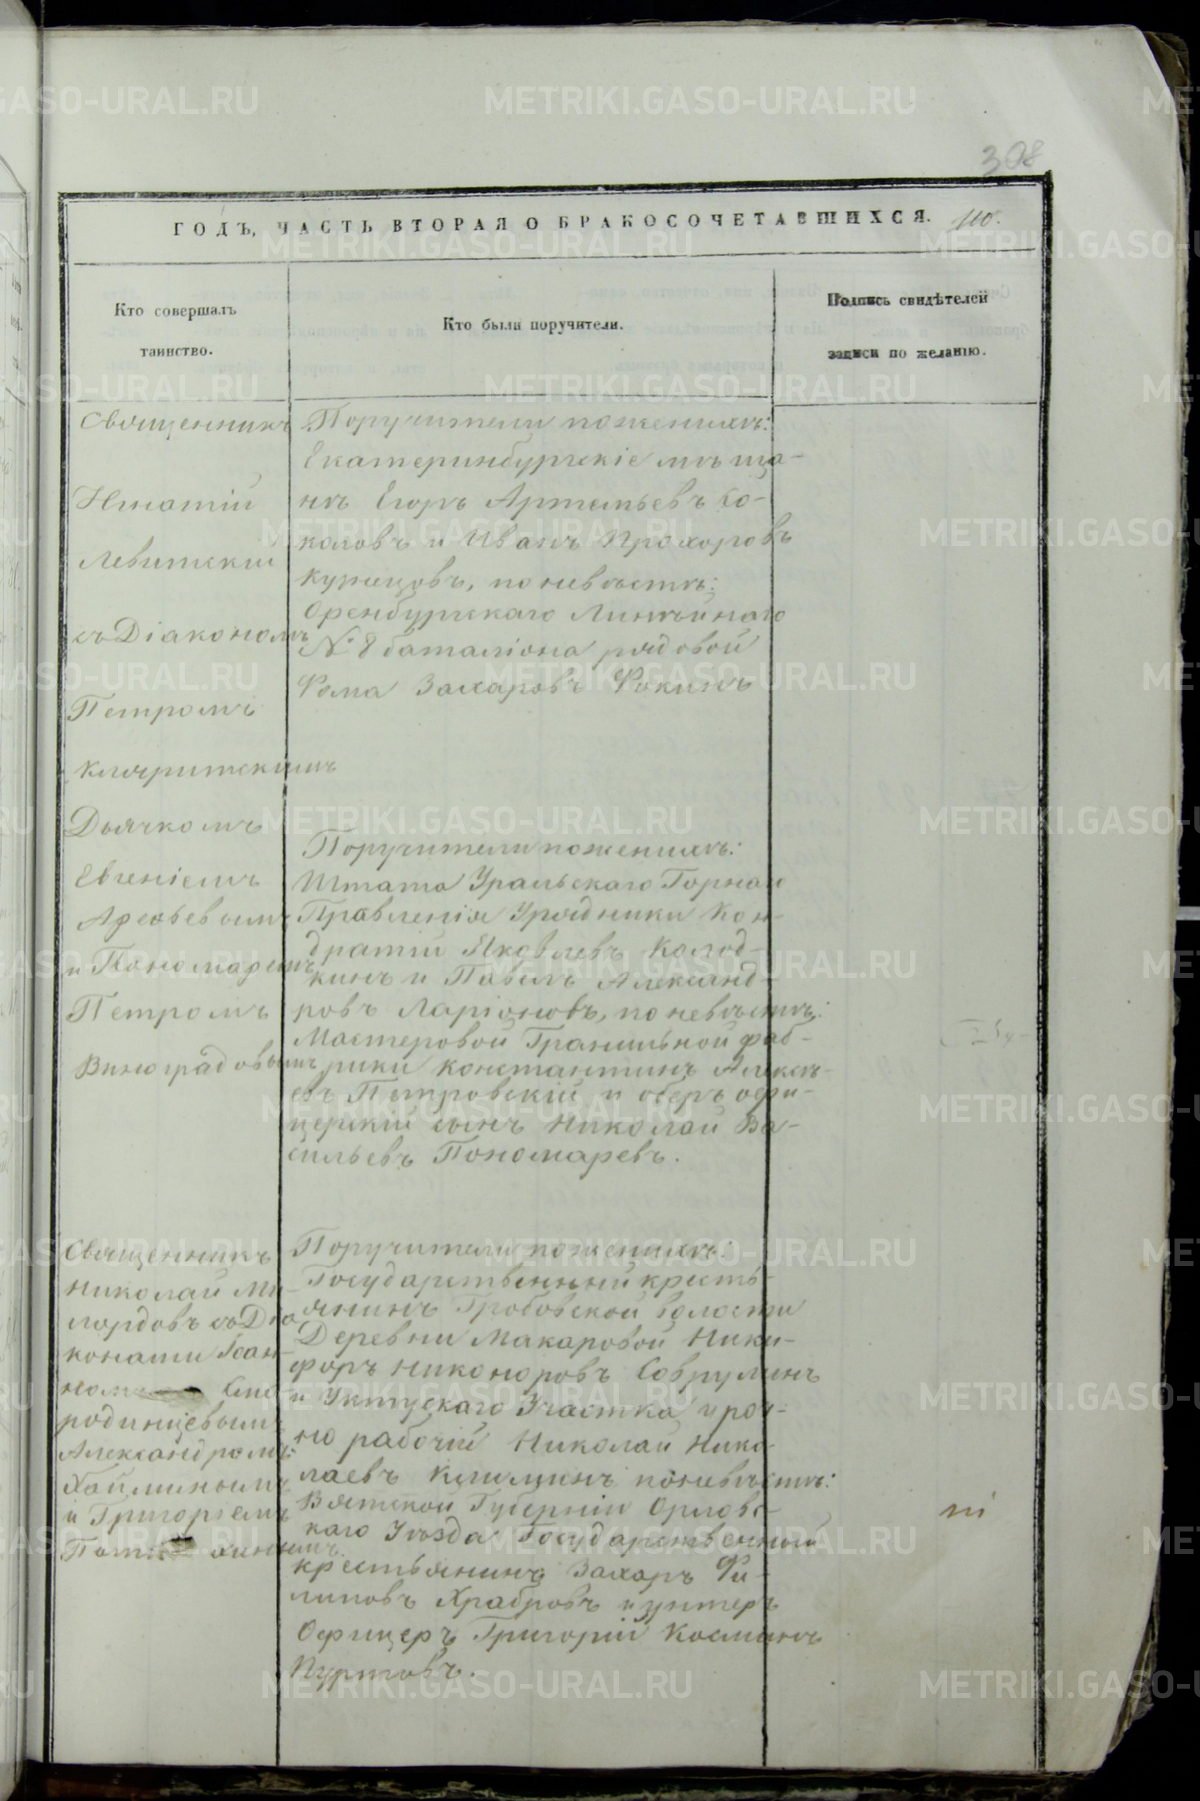 308
ГОДЪ, ЧАСТЬ ВТОРАЯ О БРАКОСОЧЕТАВШИХСЯ. 110.
Кто совершалъ
таинство.
Кто были поручители.
Подпись свидѣтелей
записи по желанію.
Священникъ
Игнатій
Левитскій
съ Діакономъ
Петромъ
Дьячкомъ
Евгеніемъ
Арефьевымъ
и Пономаремъ
Петромъ
Виноградовымъ
Поручители по женихѣ:
Екатеринбургскіе мѣща-
не Егоръ Артемьевъ Со-
коловъ и Иванъ Прохоровъ
Кузнецовъ, по невѣстѣ:
Оренбургскаго Линѣйнаго
№ 8 баталіона рядовой
Фома Захаровъ Фокинъ
Поручители по женихѣ:
Штата Уральскаго Горнаго
Правленія Урядники Кон-
дратій Яковлевъ Колод-
кинъ и Павелъ Александ-
ровъ Ларіоновъ, по невѣстѣ:
Мастеровой Гранильной фаб-
рики Константинъ Алексѣ-
евъ Петровскій и оберъ офи-
церскій сынъ Николай Ва-
сильевъ Пономаревъ.
Священникъ
Николай Ми-
лордовъ съ Діа
конами Іоан-
номъ Смо-
родинцевымъ
Александромъ
и Григоріемъ
Поручители по женихѣ:
Государственный кресть-
янинъ Гробовской волости
Деревни Макаровой Ники-
форъ Никоноровъ
и Уктусскаго Участка уроч-
но рабочій Николай Нико-
лаевъ по невѣстѣ:
Вятской Губерніи Орловс-
каго Уѣзда Государственный
крестьянинъ Захаръ Фи-
липовъ Храбровъ и унтеръ
Офицеръ Григорій Косминъ
Пуртовъ.
METRIKI.GASO-URAL.RU